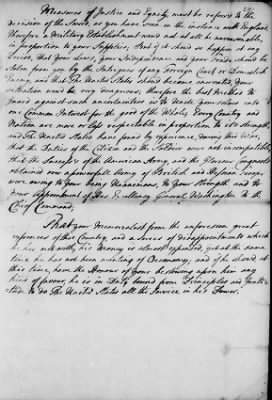 Measures of Justice and Equity, must be referd to the
decision of the Sword, as you have seen on the instance
Therefore a Military Establishment need not at all be unreasonable,
in proportion to your Supplies, And if it should so happen at any
Period, that your Laws, your Independence, and your Trade should be
taken from you by the Intrigues of any Foreign Court or Domestick
Enemy, and That The United States should be dis-united Your
situation would be very dangerous; therefore the best Method to
guard against such uncertainties is To Unite yourselves into
one Common Interest for the good of the Whole. Every Country and
Nation are more or less respectable in proportion To its strength,
and The United States have found by experience, during this War,
that the Duties of the Citizen and the Soldier were not incompatible,
that the Successes of the American Army, and the Glorious Conquests
obtained over a powerfull Army of British and Hessian Troops
were owing To your being Unanimous, To your Strength, and to
your appointment of His Excellency General Washington to the
Chief Command.
That your Memorialist from the unforeseen great
expences of this Country, and a series of disappointments which
he has met with, his Money is almost expended, yet at the same
time he has not been wanting of Oeconomy; and if he should at
this time, have the Honour of your bestowing upon him any
kind of favour, he is in Duty bound from Principles and Gratitude
to do The United States all the Service in his Power.